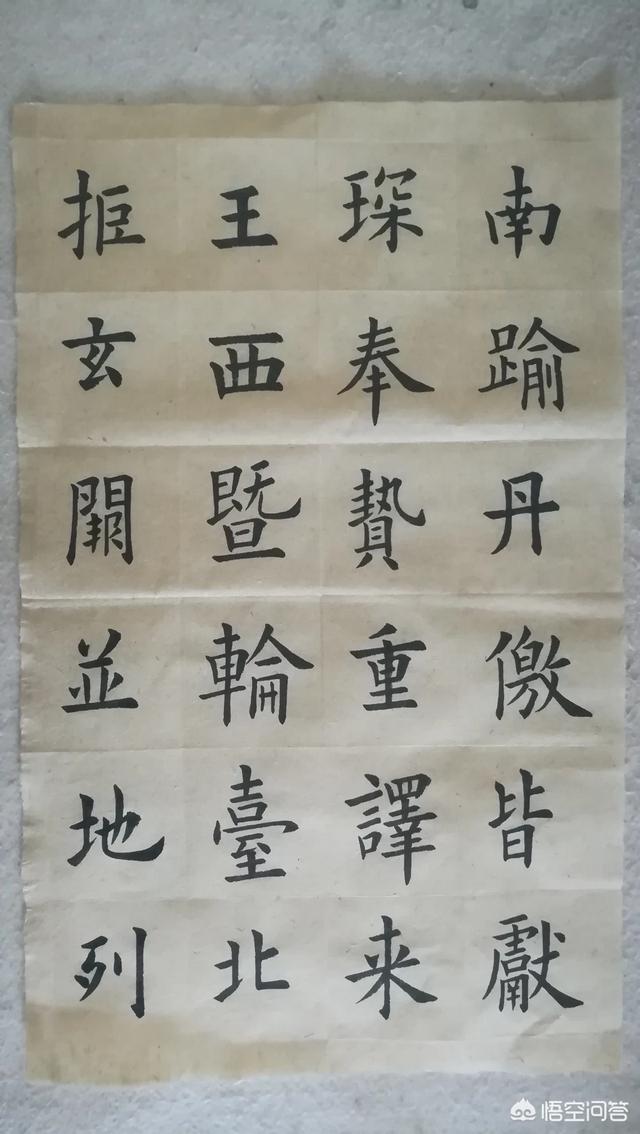 南踰丹儌皆獻
琛奉贄重譯来
王西暨輪臺北
拒玄闕並地列
悟空问答